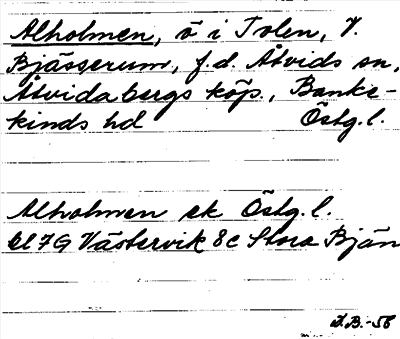 Alholmen, ö i Tolen, V.
Bjässerum, f.d. Åtvids sn,
Åtvidabergs köp., Banke-
kinds hd Östg.l.
Alholmen ek Östg.l.
bl 7G Västervik 8c Stora Bjän
J.B.-56